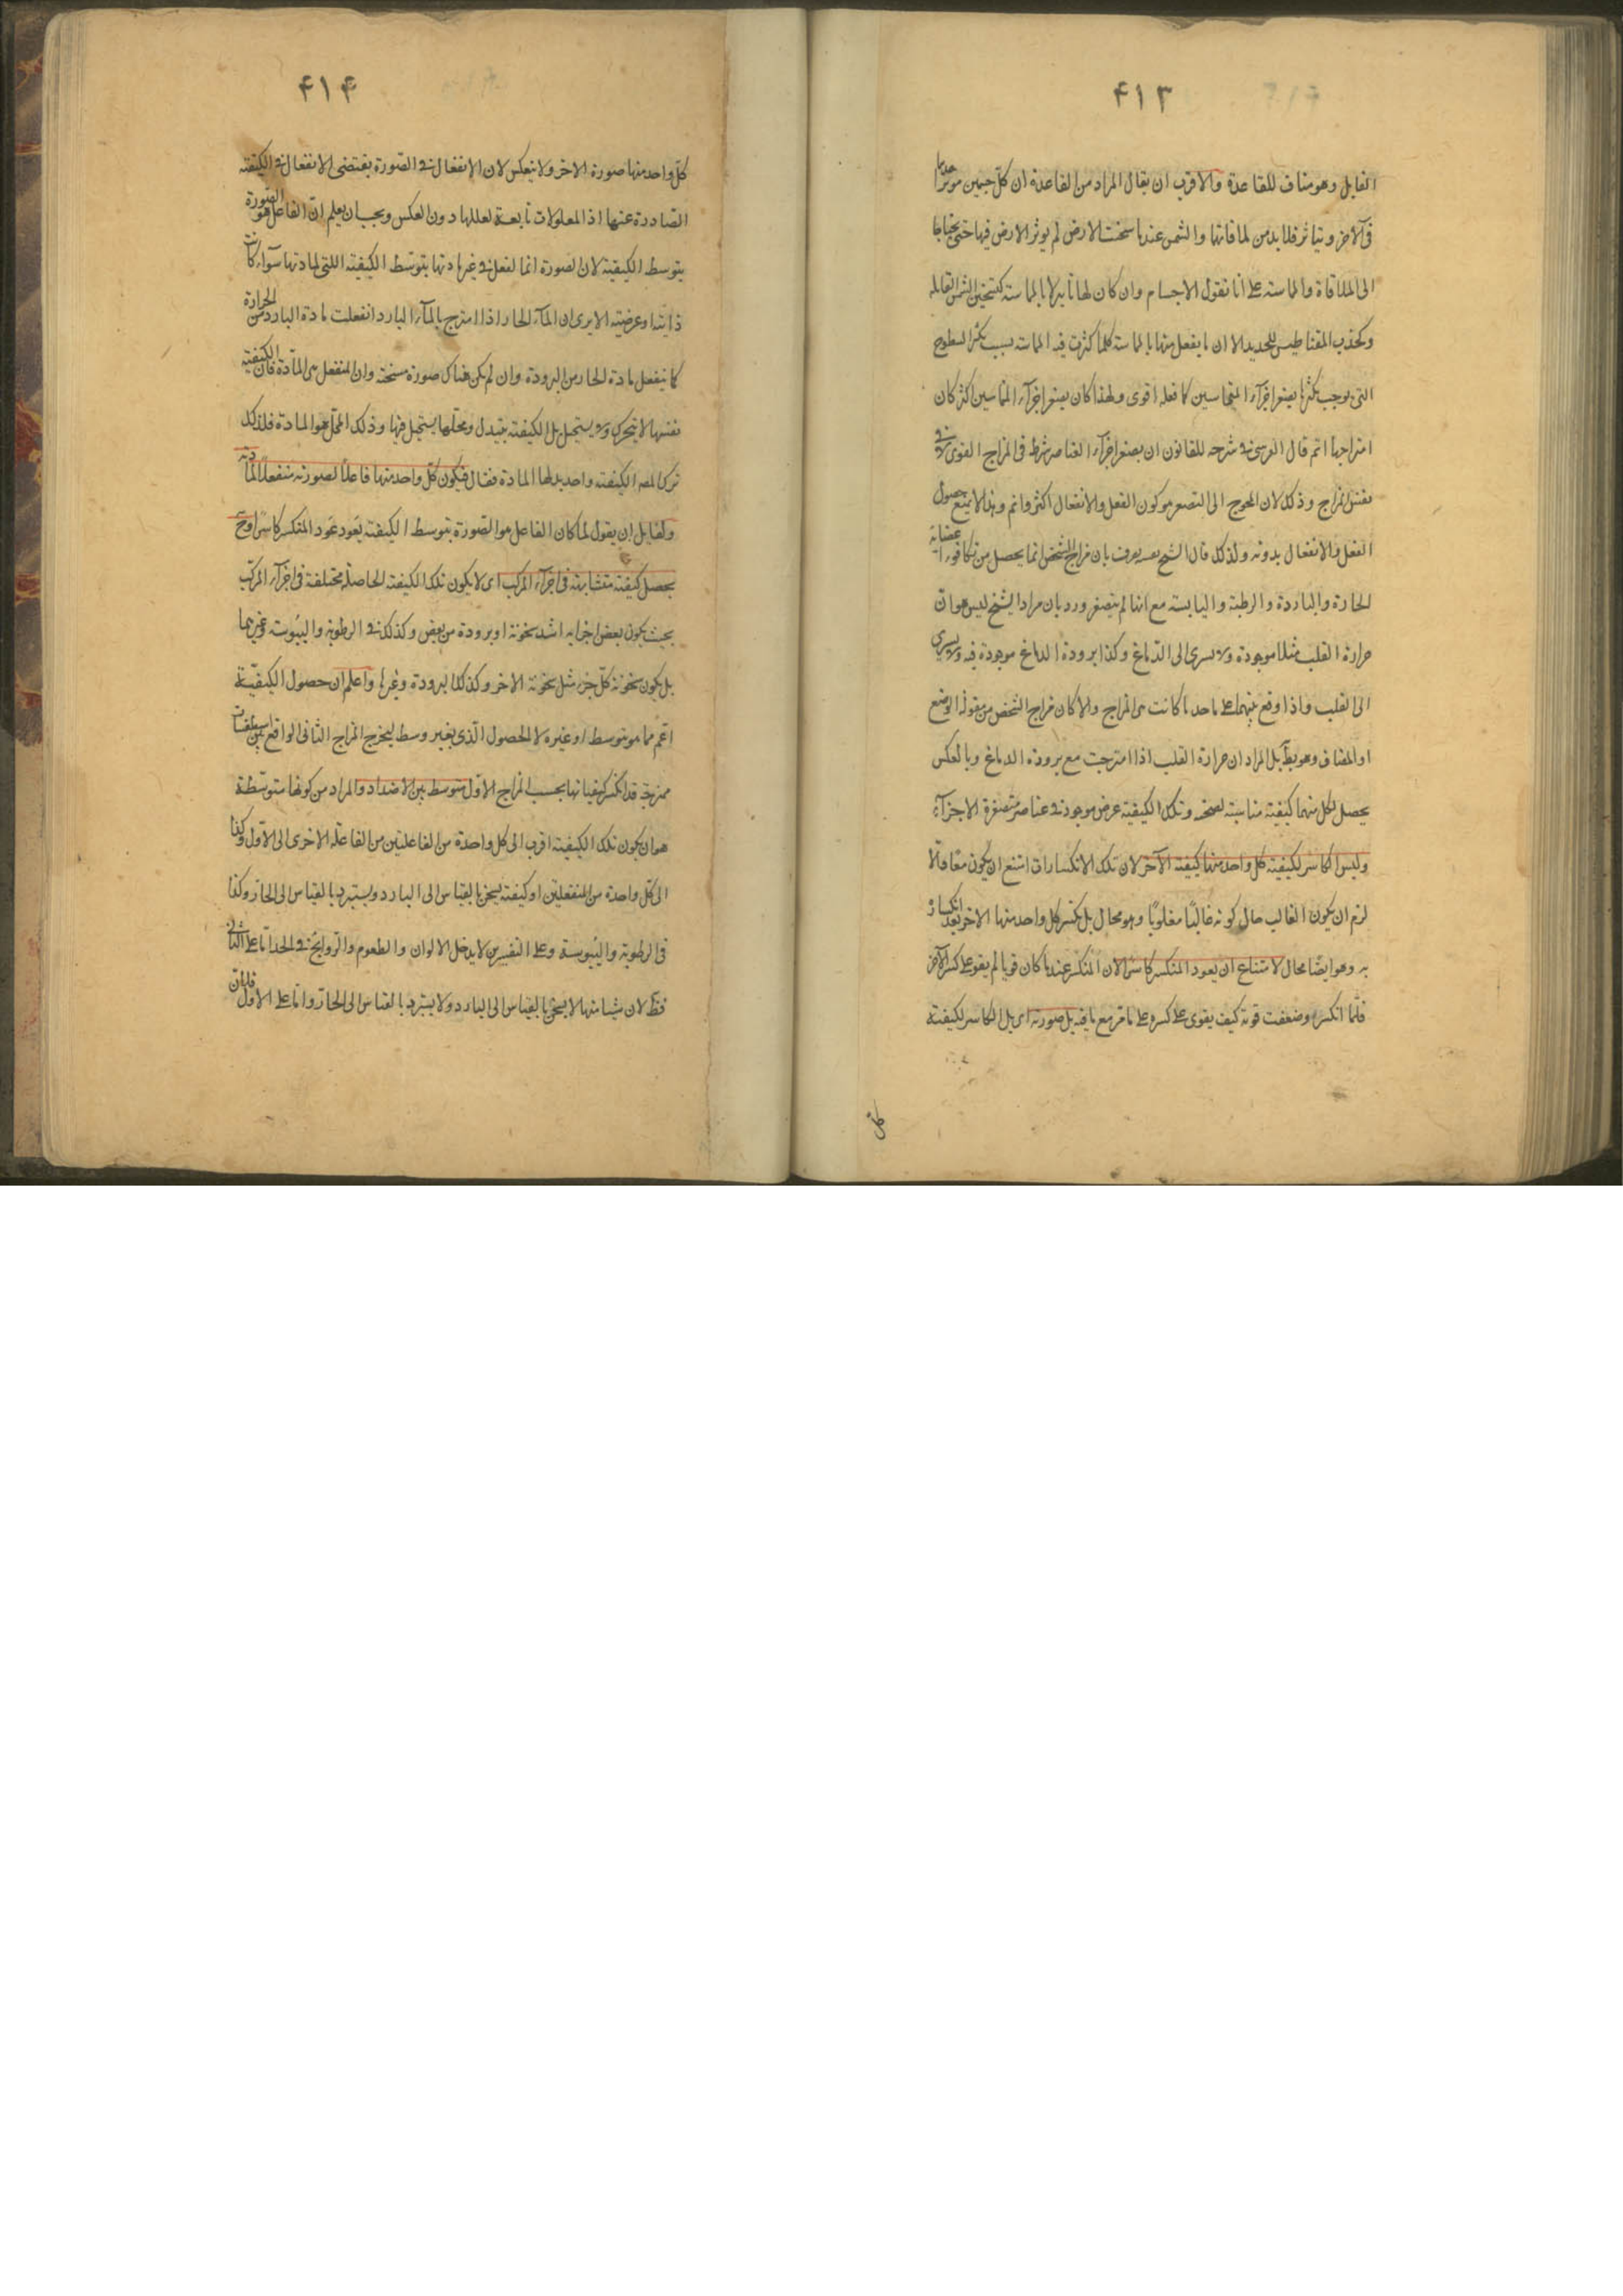 ۴۱۳
القابل وهو مناف للقاعدة والاقرب ان يقال المراد من القاعدة ان كل جسمين موثر احدهما
فى الآخر ويتاثر فلا بد من لماقاتها والشمس عندما سخنت الارض لم يوثر الارض فيها حتى يحتاجا
الى الملاقاة والمماسته على انا نقول الاجسام وان كان لها تاثير لا بالمماسته كتسخين الشمس القابلة
وكجذب المقناطيس للحديد الا ان ما يفعل منها بالمماسته كلما كثرت فيه المماسته بسبب تكثر السطوح
التى يوجب تكثرها بصغر اجزآء المتماسين كا فعله اقوى ولهذا كان بصغر اجزآء المتماسين اكثر كان
امتزاجها اتم قال القرشى فى شرحه للقانون ان بصغر اجزآء العناصر شرط فى المزاج القوى لا فى
نفس المزاج وذلك لان المحوج الى التصغر هو كون الفعل والانفعال اكثر واتم وهذا لا يمنع حصول
الفعل والانفعال بدونه ولذلك قال الشيخ بان مزاج الشخص انما يحصل من تكافوء اعضائه
الحارة والباردة والرطبة واليابسته مع انها لم يتصغر ورد بان مراد الشيخ ليس هو ان
حرارة القلب مثلا موجودة ولا يسرى الى الدماغ وكذا برودة الدماغ موجودة فيه ولا يسرى
الى القلب واذا وقع بينهما على ما حد ما كانت هى المزاج والا كان مزاج الشخص من مقولة الوضع
او المضاف وهو بط بل المراد ان حرارة القلب اذا امتزجت مع برودة الدماغ وبالعكس
يحصل لكل منهما كيفية مناسبته لصحته وتلك الكيفية عرض موجود فى عناصر متصغرة الاجزآء
وليس الكاسر لكيفية كل واحد منها كيفية الآخر لان تلك الانكسارات امتنع ان يكون معا والا
لزم ان يكون الغالب حال كونه غالبا مغلوبا وهو محال بل يكسر كل واحد منها الاخر بعد انكساره
به وهو ايضا محال لامتناع ان يعود المنكسر كاسرا لان المنكسر عندما كان قويا لم يقو على كسر الآخر
فلما انكسر وضعفت قوته كيف يقوى على كسره على ما مر مع ما فيه بل صورته اى بل الكاسر لكيفية
كل
۴۱۴
كل واحد منها صورة الاخر ولا ينعكس لان الانفعال فى الصورة يقتضى الانفعال فى الكيفية
الصادرة عنها اذ المعلولات تابعة لعللها دون العكس ويجب ان يعلم ان الفاعل هو الصورة
بتوسط الكيفية لان الصورة انما تفعل فى غير مادتها بتوسط الكيفية اللتى لمادتها سوآء كانت
ذاتية او عرضية الا يرى ان المآء الحار اذا امتزج بالمآء البارد انفعلت مادة البارد من الحرارة
كما تنفعل مادة الحار من البرودة وان لم يكن هناك صورة مسخنة وان المنفعل هى المادة فان الكيفية
نفسها لا تتحرك ولا يستحيل بل الكيفية يتبدل ومحلها يستحيل فيها وذلك المحل هو المادة فلذلك
ترك المصه الكيفية واحد بدلها المادة فقال فيكون كل واحد منها فاعلا لصورته منفعلا لمادته
ولقايل ان يقول لما كان الفاعل هو الصورة بتوسط الكيفية يعود عود المنكسر كاسرا وح
يحصل كيفية متشابهة فى اجزآء المركب اى لا يكون تلك الكيفية الحاصلة مختلفة فى اجزآء المركب
بحيث يكون بعض اجزايه اشد سخونة او برودة من بعض وكذلك فى الرطوبة واليبوسة وغيرهما
بل يكون سخونة كل جزء مثل سخونة الاخر وكذلك البرودة وغيرها واعلم ان حصول الكيفية
اعم مما هو بتوسط او غيره لا الحصول الذى بغير وسط ليخرج المزاج الثانى الواقع بين اسطقسات
ممزجة قد انكسر كيفياتها بحسب المزاج الاول متوسط بين الاضداد والمراد من كونها متوسطة
هو ان يكون تلك الكيفية اقرب الى كل واحدة من الفاعلتين من الفاعلة الاخرى الى الاول وكذا
الى كل واحدة من المنفعلتين او كيفية يسخن بالقياس الى البارد ويستبرد بالقياس الى الحار وكذا
فى الرطوبة واليبوسة وعلى التفسيرين لا يدخل الالوان والطعوم والروايح فى الحد اما على الثانى
فظ لان شيئا منها لا يسخن بالقياس الى البارد ولا يستبرد بالقياس الى الحار واما على الاول فلان